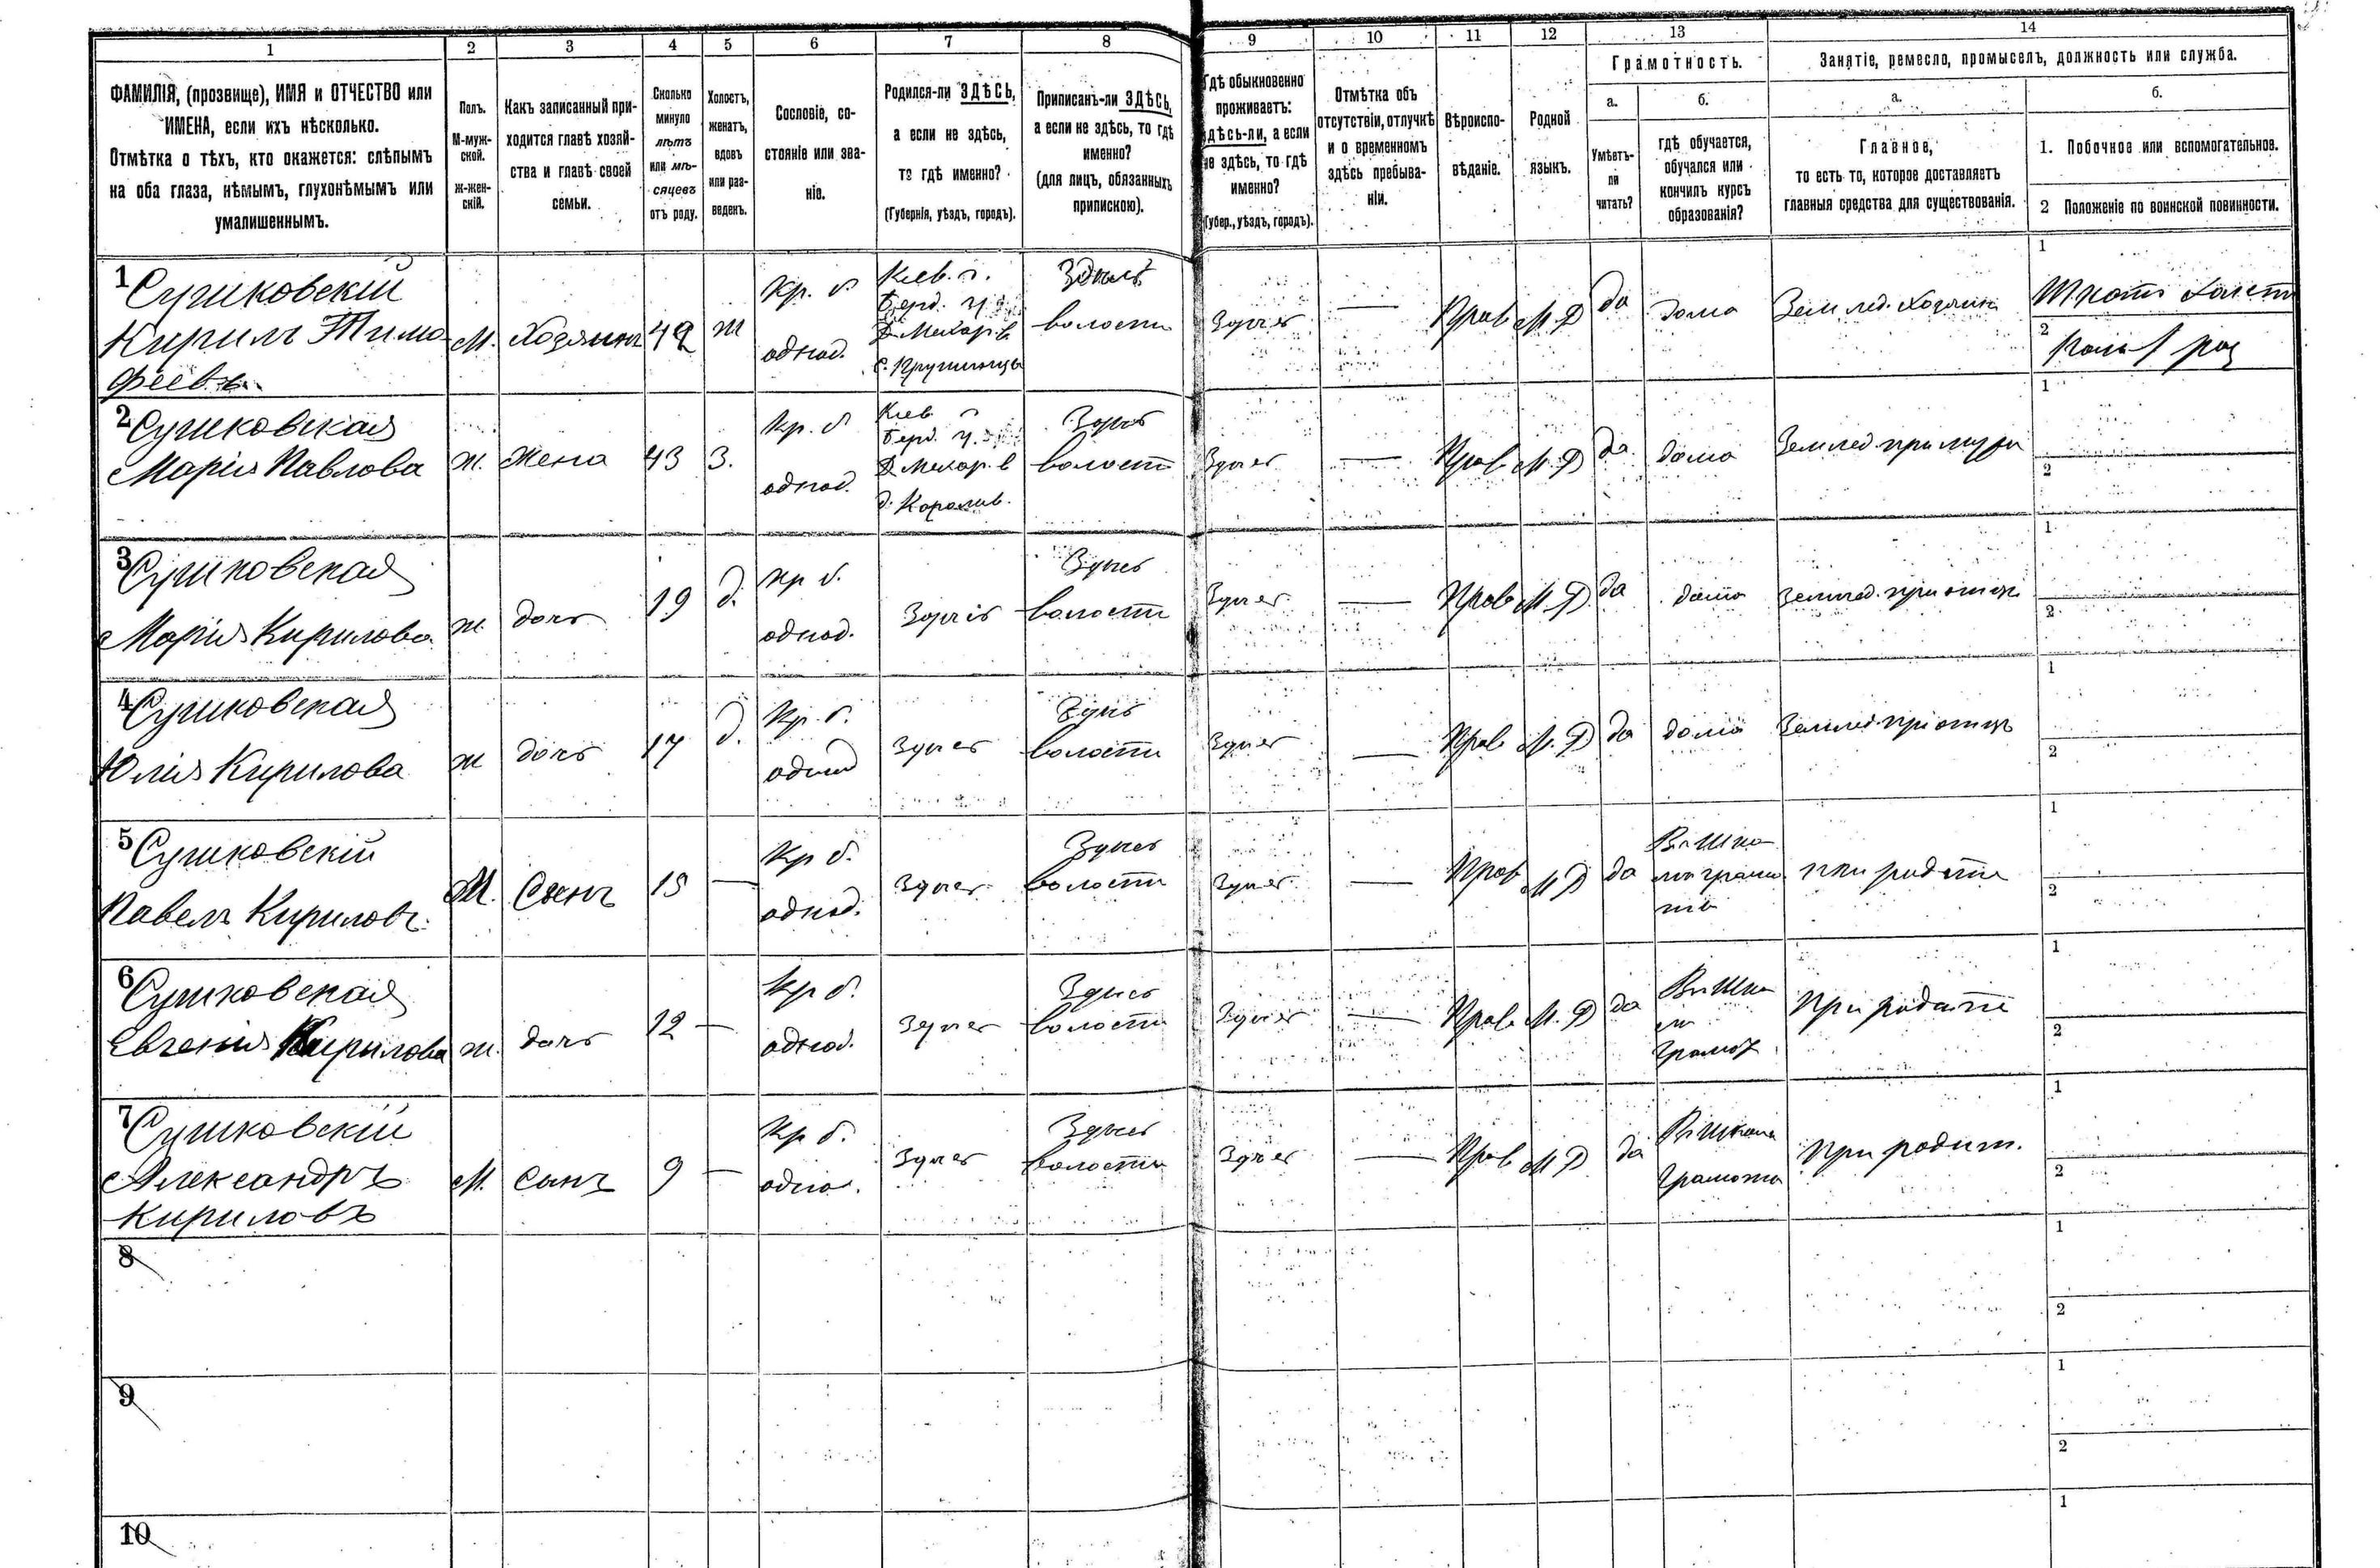 1 2 3 4 5 6 7 8 9 10 11 12 13 14
ФАМИЛІЯ, (прозвище), ИМЯ и ОТЧЕСТВО или
ИМЕНА, если ихъ нѣсколько.
Отмѣтка о тѣхъ, кто окажется: слѣпымъ
на оба глаза, нѣмымъ, глухонѣмымъ или
умалишеннымъ.
Полъ.
М-муж-
ской.
ж-жен-
скій.
Какъ записанный при-
ходится главѣ хозяй-
ства и главѣ своей
семьи.
Сколько
минуло
лѣтъ
или мѣ-
сяцевъ
отъ роду.
Холостъ,
женатъ,
вдовъ
или раз-
веденъ.
Сословіе, со-
стояніе или зва-
ніе.
Родился-ли ЗДѢСЬ,
а если не здѣсь,
то гдѣ именно?
(Губернія, уѣздъ, городъ).
Приписанъ-ли ЗДѢСЬ,
а если не здѣсь, то гдѣ
именно?
(для лицъ, обязанныхъ
припискою).
Гдѣ обыкновенно
проживаетъ:
здѣсь-ли, а если
не здѣсь, то гдѣ
именно?
(Губер., уѣздъ, городъ).
Отмѣтка объ
отсутствіи, отлучкѣ
и о временномъ
здѣсь пребыва-
ніи.
Вѣроиспо-
вѣданіе.
Родной
языкъ.
Грамотность.
а.
Умѣетъ-
ли
читать?
б.
гдѣ обучается,
обучался или
кончилъ курсъ
образованія?
Занятіе, ремесло, промыселъ, должность или служба.
а.
Главное,
то есть то, которое доставляетъ
главныя средства для существованія.
б.
1. Побочное или вспомогательное.
2 Положеніе по воинской повинности.
1 Сушковскій
Кирилъ Тимо-
феевъ
М. Хозяинъ 42 ж
Кр. б.
однод.
Кіев. г.
Берд. у.
Д. Махар. в.
с.
Здѣсь
волости
Здѣсь — Прав М.Р да дома Землед. Хозяинъ
1
2
2 Сушковская
Марія Павлова
ж. Жена 43 З.
Кр. б
однод.
Кіев г
Берд. у.
Д Махар. в
д. Королив.
Здѣсь
волости
Здѣсь — Прав М.Р да. дома Землед при мужи
1
2
3 Сушковская
Марія Кирилова
ж дочь 19 д.
Кр б.
однод.
Здѣсь
Здѣсь
волости
Здѣсь — Прав М.Р. да дома Землед. при отцѣ
1
2
4 Сушковская
Юлія Кирилова
ж дочь 17 д.
Кр. б.
однод
Здѣсь
Здѣсь
волости
Здѣсь — Прав М.Р да дома Землед при отцѣ
1
2
5 Сушковскій
Павелъ Кириловъ.
М. Сынъ 15 —
Кр б.
однод.
Здѣсь
Здѣсь
волости
Здѣсь — Прав М Р да
при родите
1
2
6 Сушковская
Евгенія Кирилова
ж. дочь 12 —
Кр б.
однод.
Здѣсь
Здѣсь
волости
Здѣсь — Прав. М.Р да
грамот
при родите
1
2
7 Сушковскій
Александръ
Кириловъ
М. Сынъ 9 —
Кр б.
однод.
Здѣсь
Здѣсь
волости
Здѣсь — Прав М Р да
грамоты
при родит.
1
2
8
1
2
9
1
2
10
1